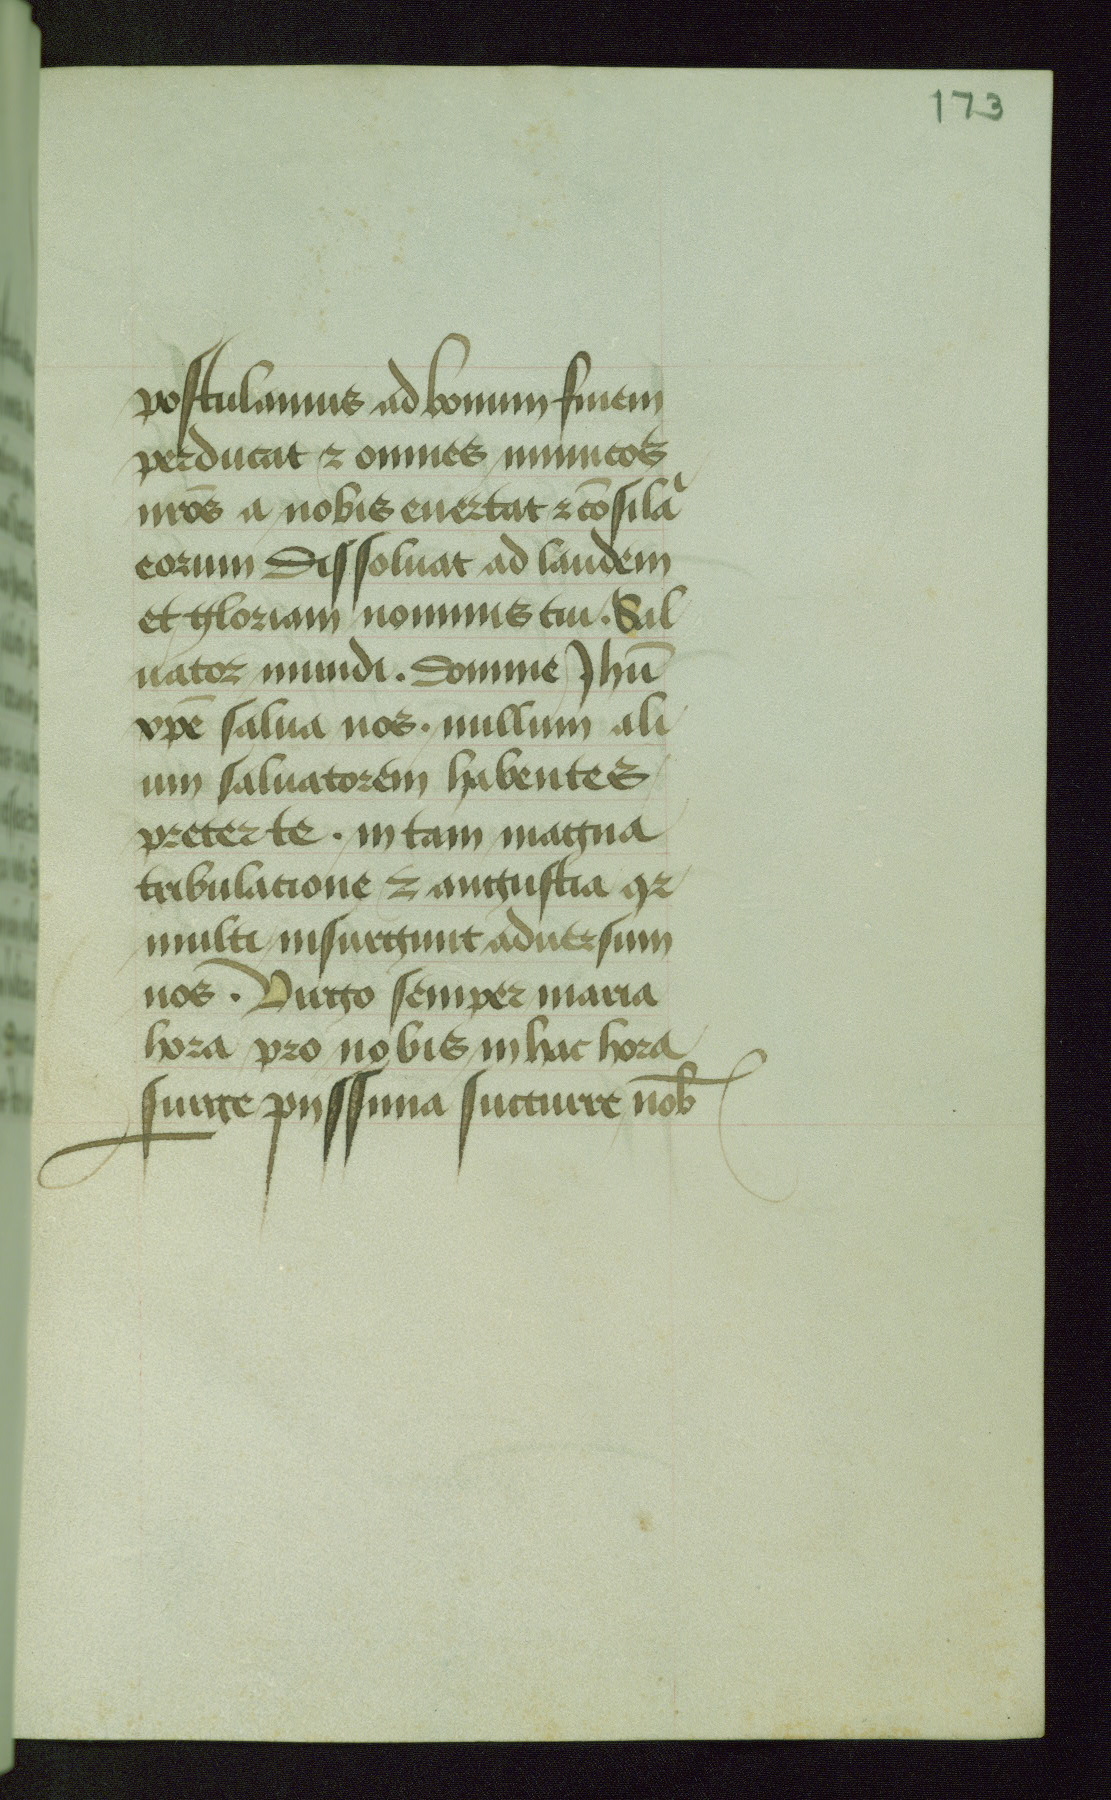 173
postulamus ad bonum finem
perducat ⁊ omnes inimicos
nr̄os a nobis euertat ⁊ cōsilia
eorum dissoluat ad laudem
et gloriam nominis tui. Sal
uator mundi. domine Jhū
xp̄e salua nos. nullum ali
um saluatorem habentes
preter te. in tam magna
tribulacione ⁊ angustia qr
multi insurgunt aduersum
nos. Virgo semper maria
hora pro nobis in hac hora
surge pijssima succurre nob̄